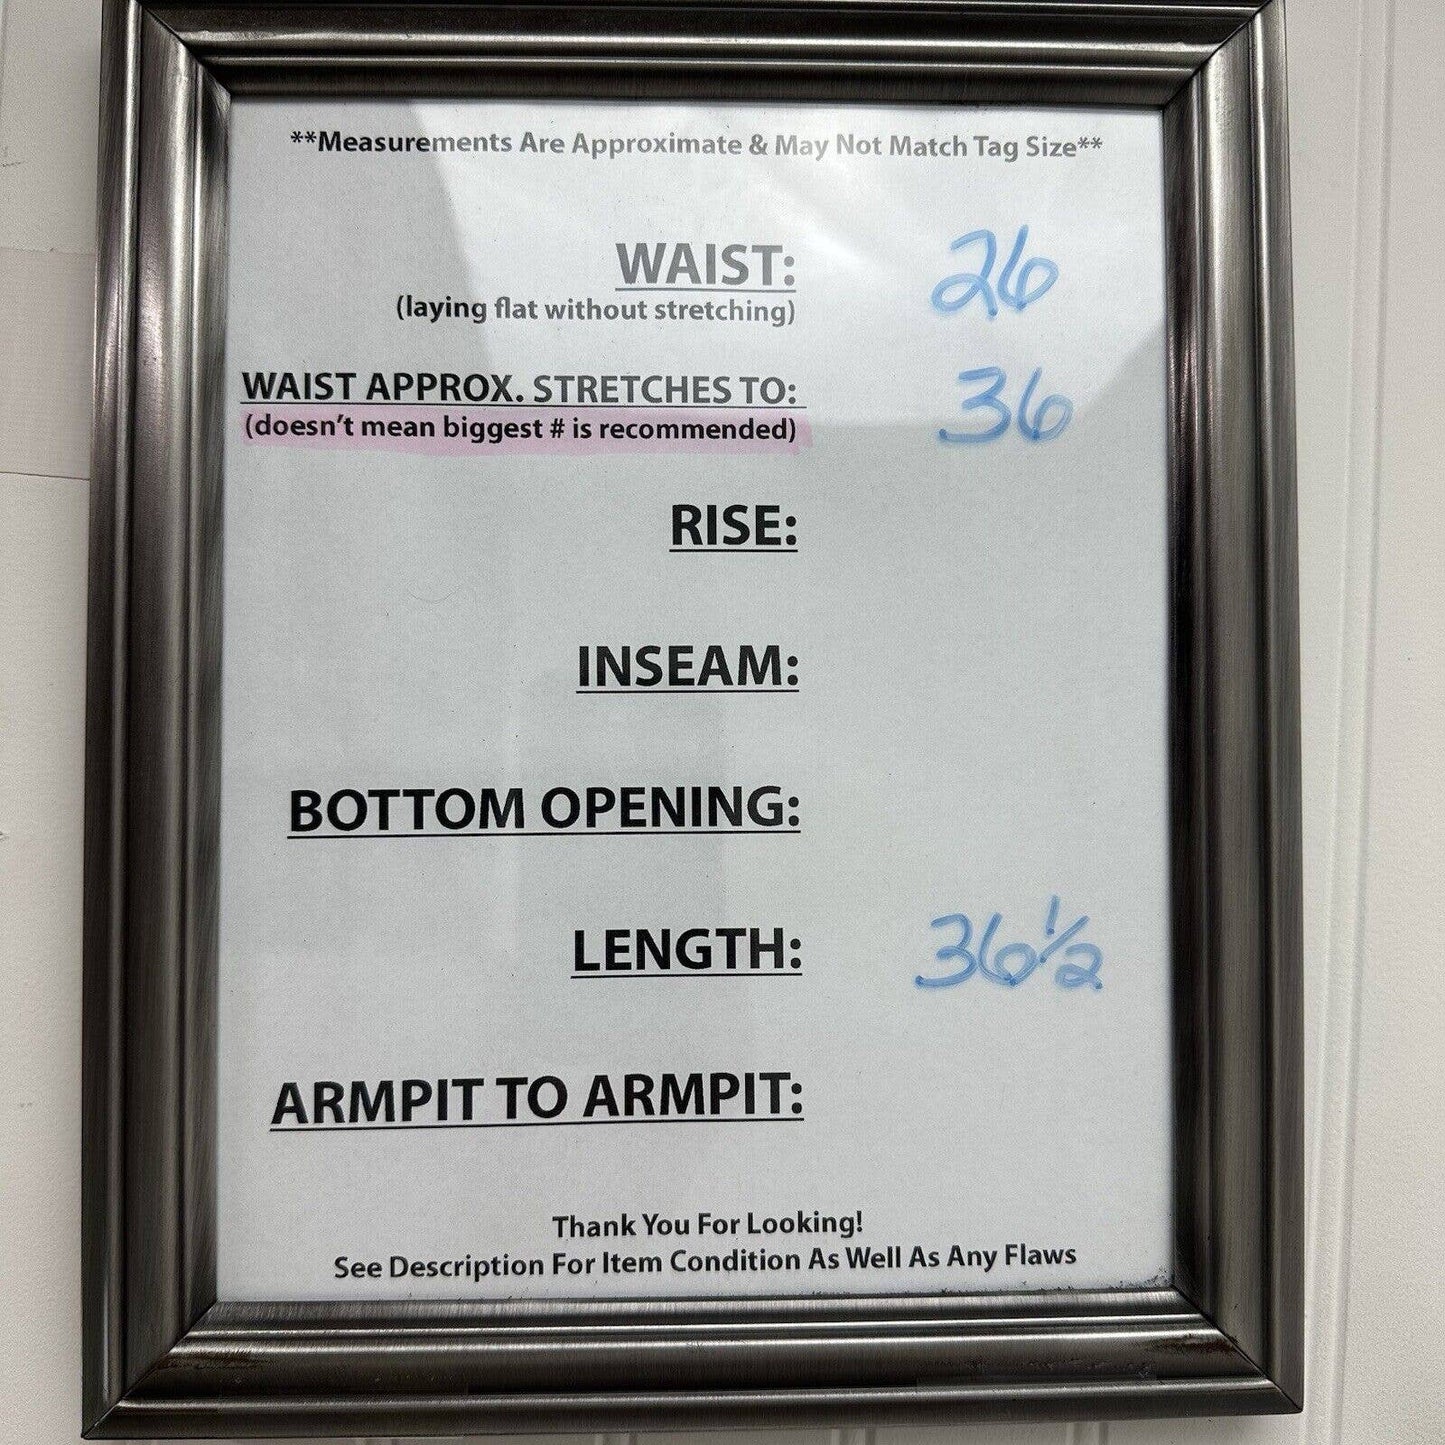 **Measurements Are Approximate & May Not Match Tag Size**
WAIST: 26
(laying flat without stretching)
WAIST APPROX. STRETCHES TO: 36
(doesn't mean biggest # is recommended)
RISE:
INSEAM:
BOTTOM OPENING:
LENGTH: 36 1/2
ARMPIT TO ARMPIT:
Thank You For Looking!
See Description For Item Condition As Well As Any Flaws